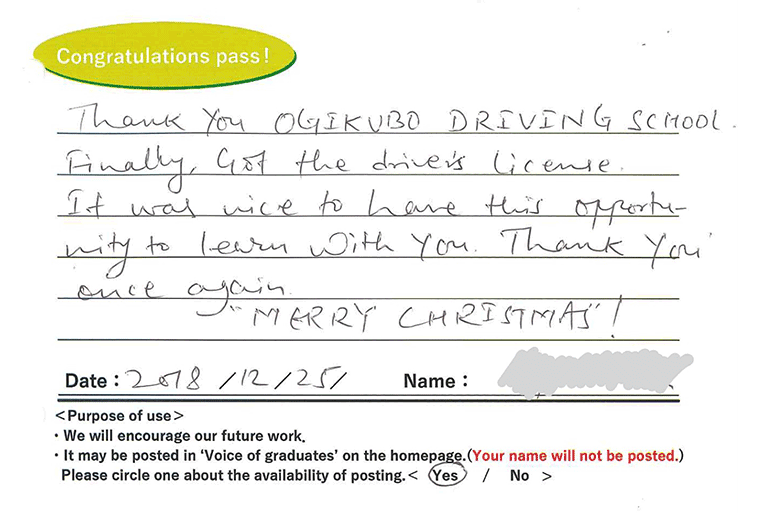 Congratulations pass!
Thank You OGIKUBO DRIVING SCHOOL.
Finally, Got the driver's License.
It was nice to have this opportu-
nity to learn with you. Thank You
once again.
"MERRY CHRISTMAS"!
Date : 2018 /12 /25/ Name :
<Purpose of use>
・We will encourage our future work.
・It may be posted in 'Voice of graduates' on the homepage.(Your name will not be posted.)
Please circle one about the availability of posting.< Yes / No >